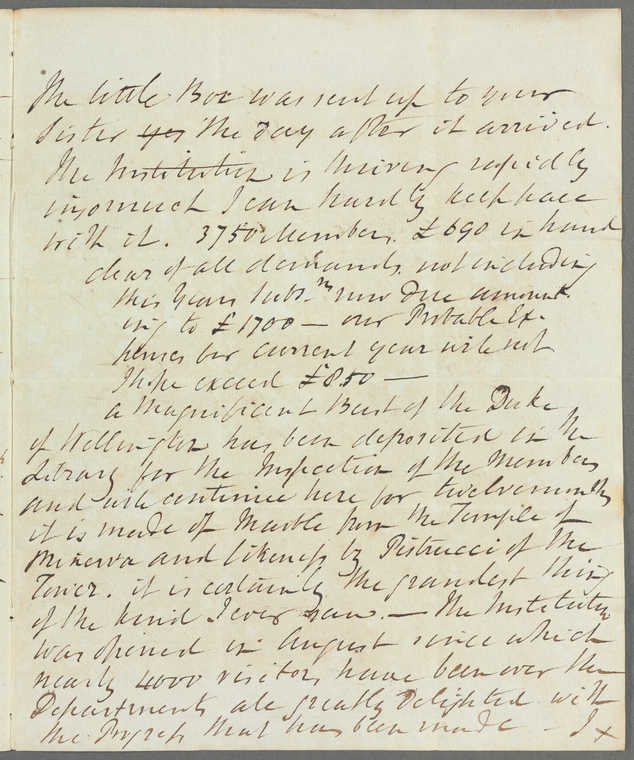 The little Box was sent up to your
Sister yes the day after it arrived.
The Institution is thriving rapidly
insomuch I can hardly keep pace
with it. 3750 Members. £690 in hand
clear of all demands, not including
this Years Subs.ns now due amount-
ing to £1700 — our Probable Ex-
penses for current year will not
I hope exceed £850 —
a Magnificent Bust of the Duke
of Wellington has been deposited in the
Library for the Inspection of the Members
and will continue here for twelvemonths
it is made of Marble from the Temple of
Minerva and likeness by Pistrucci of the
Tower. it is certainly the grandest thing
of the kind I ever saw. — The Institution
was opened in August since which
nearly 4000 visitors have been over the
Departments all greatly delighted with
the Progress that has been made — I